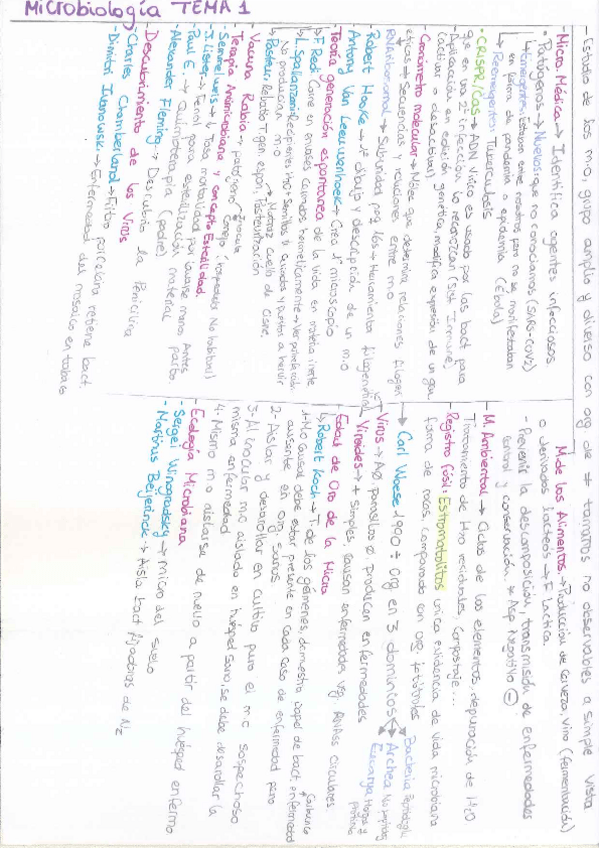 Microbiología TEMA 1
- Estudio de los m.o, grupo amplio y diverso con org de ≠ tamaños no observables a simple vista
- Micro. Médica → Identifica agentes infecciosos
- Patógenos → Nuevos: que no conocíamos (SARS-COV2)
↳ Emergentes: Estaban entre nosotros pero no se manifestaban
en forma de pandemia o epidemia (Ébola)
↳ Reemergentes: Tuberculosis
- CRISPR/Cas → ADN vírico es usado por las bact para
que en una 2º infección lo reconozcan (Sist Inmune)
- Aplicación en edición genética, modifica expresión de un gen
(activar o desactivar)
- Cronómetro molecular → Moléc que determina relaciones filogen
éticas → Secuencias y relaciones entre m.o
RNA ribosomal → Subunidad peq → Herramienta filogenética
- Robert Hooke → 1º dibujo y descripción de un m.o
- Antony Van Leeuwenhoek → Crea 1º microscopio
Teoría generación espontánea de la vida en materia inerte
↳ F. Redi: Carne en envases cerrados herméticamente →
↳ L. Spallanzani: Recipientes H2O + Semillas
No producían m.o
↳ Pasteur: Rebate T. gen espon, Pasteurización
↳ Matraz cuello de cisne.
- Vacuna Rabia → patógeno
- Terapia Antimicrobiana y concepto Esterilidad
- Semmelweis → ↓ Tasa mortalidad por lavarse mano antes parto
- J. Lister → Fenol para esterilización material
- Paul E. → Quimioterapia (padre)
- Alexander Fleming → Descubrió la Penicilina
- Descubrimiento de los Virus
- Charles Chamberland → Filtro porcelana retiene bact
- Dimitri Ivanowski → Enfermedad del mosaico en tabaco
M. de los Alimentos. → Producción de cerveza, vino (fermentación)
o derivados lácteos → F. Láctica.
- Prevenir la descomposición, transmisión de enfermedades
control y conservación. * Asp Negativo ⊖
- M. Ambiental → Ciclos de los elementos, depuración de H2O
Tratamiento de H2O residuales, compostaje...
- Registro fósil: Estromatolitos única evidencia de vida microbiana
forma de rocas, comparado con org
→ Carl Woese 1990 ÷ org en 3 dominios → Bacteria
Archea
Eucarya
Virus → AØ, parásitos Ø producen enfermedades
Viroides → + simples, causan enfermedades veg. RNAss circulares
Edad de Oro de la Micro
↳ Robert Koch → T. de los gérmenes, demuestra papel de bact enfermedad
Carbunco
1- M.o causal debe estar presente en cada caso de enfermedad pero
ausente en org. sanos
2- Aislar y desarrollar en cultivo puro el m.o sospechoso
3- Al inocular m.o aislado en huésped sano, se debe desarrollar la
misma enfermedad
4- Mismo m.o aislarse de nuevo a partir del huésped enfermo
- Ecología Microbiana
- Sergei Winogradsky → micro del suelo
- Martinus Beijerinck → Aisla bact fijadoras de N2